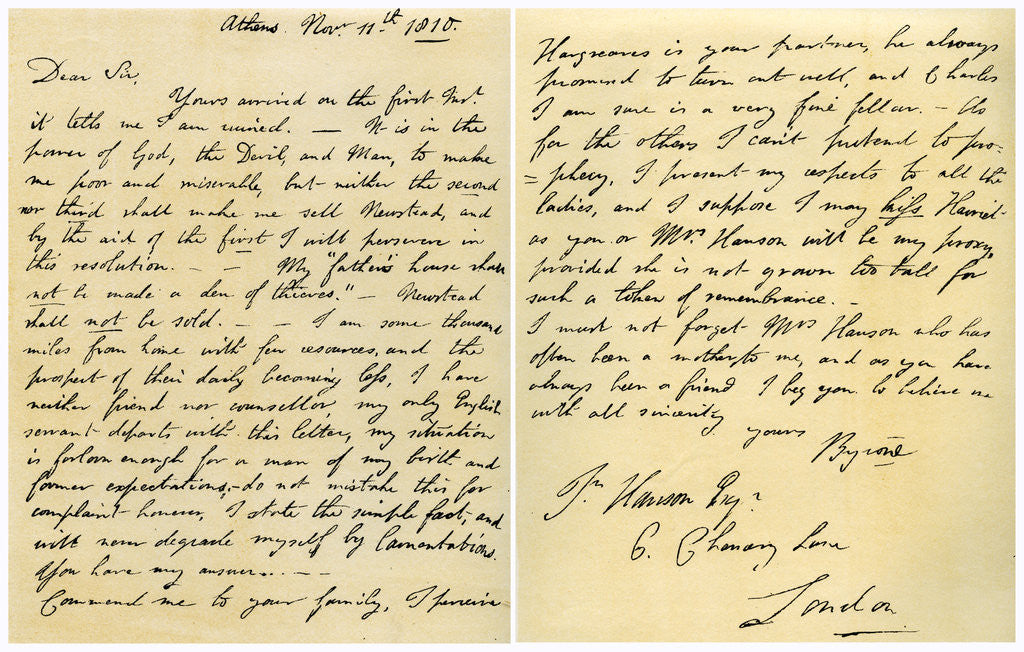 Athens. Novr. 11th. 1810.
Dear Sir,
Yours arrived on the first Inst.
it tells me I am ruined. — It is in the
power of God, the Devil, and Man, to make
me poor and miserable, but neither the second
nor third shall make me sell Newstead, and
by the aid of the first I will persevere in
this resolution. — — My "father's house shall
not be made a den of thieves." — Newstead
shall not be sold. — — I am some thousand
miles from home with few resources, and the
prospect of their daily becoming less, I have
neither friend nor counsellor, my only English
servant departs with this letter, my situation
is forlorn enough for a man of my birth and
former expectations; — do not mistake this for
complaint however, I state the simple fact, and
will never degrade myself by lamentations.
You have my answer... — —
Commend me to your family, I perceive
Hargreaves is your partner, he always
promised to turn out well, and Charles
I am sure is a very fine fellow. — As
for the others I can't pretend to pro=
=phecy, I present my respects to all the
ladies, and I suppose I may kiss Harriet
as you or Mrs. Hanson will be my proxy,
provided she is not grown too tall for
such a token of remembrance. —
I must not forget Mrs Hanson who has
often been a mother to me, and as you have
always been a friend I beg you to believe me
with all sincerity
yours
Byron
Jn Hanson Esqr.
6. Chancery Lane
London